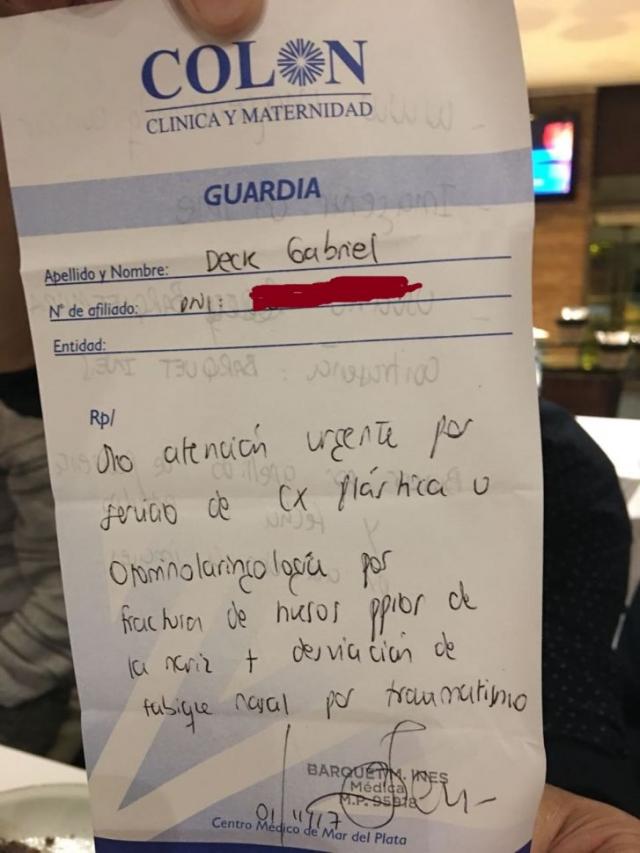 COLON
CLINICA Y MATERNIDAD
GUARDIA
Apellido y Nombre: Deck Gabriel
N° de afiliado: DNI:
Entidad:
Rp/
S/o atención urgente por
servicio de CX plástica u
Otorrinolaringología por
fractura de huesos ppios de
la nariz + desviación de
tabique nasal por traumatismo
BARQUET M. INES
Médica
M.P.
01/11/17
Centro Médico de Mar del Plata